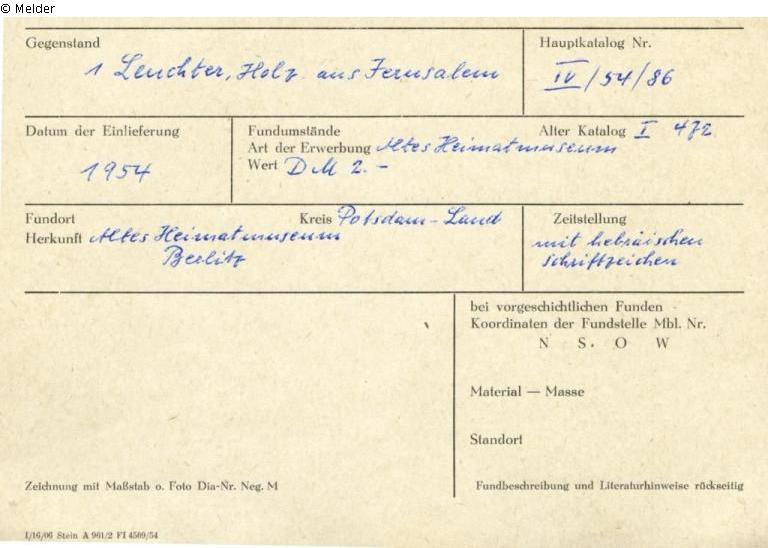 © Melder
Gegenstand
1 Leuchter, Holz aus Jerusalem
Hauptkatalog Nr.
IV/54/86
Datum der Einlieferung
1954
Fundumstände
Alter Katalog I 472
Art der Erwerbung Altes Heimatmuseum
Wert DM 2.-
Fundort
Kreis Potsdam-Land
Herkunft Altes Heimatmuseum
Berlitz
Zeitstellung
mit hebräischen
Schriftzeichen
bei vorgeschichtlichen Funden
Koordinaten der Fundstelle Mbl. Nr.
N S. O W
Material — Masse
Standort
Zeichnung mit Maßstab o. Foto Dia-Nr. Neg. M
Fundbeschreibung und Literaturhinweise rückseitig
I/16/06 Stein A 961/2 FI 4509/54